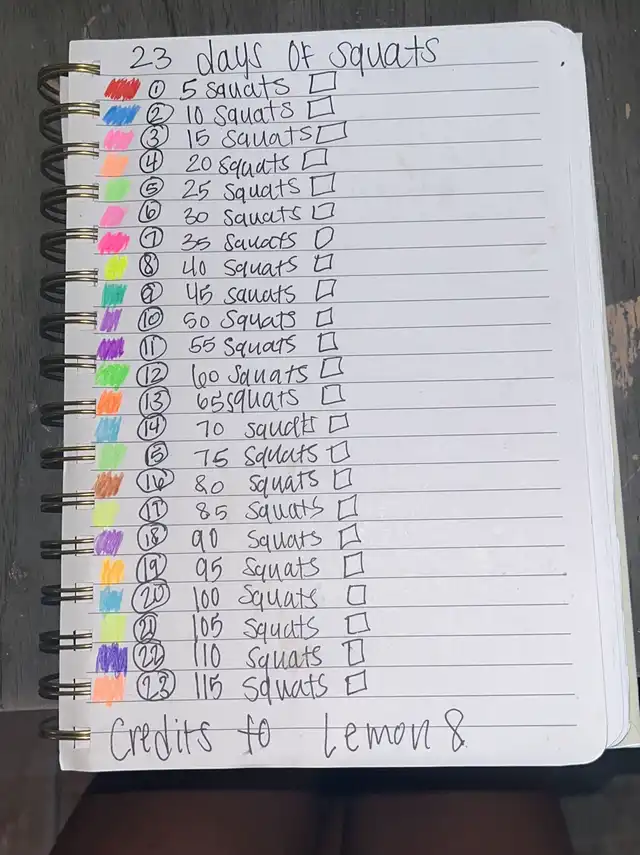 23 days of squats
① 5 squats
② 10 squats
③ 15 squats
④ 20 squats
⑤ 25 squats
⑥ 30 squats
⑦ 35 squats
⑧ 40 squats
⑨ 45 squats
⑩ 50 squats
⑪ 55 squats
⑫ 60 squats
⑬ 65 squats
⑭ 70 squats
⑮ 75 squats
⑯ 80 squats
⑰ 85 squats
⑱ 90 squats
⑲ 95 squats
⑳ 100 squats
㉑ 105 squats
㉒ 110 squats
㉓ 115 squats
Credits to Lemon 8